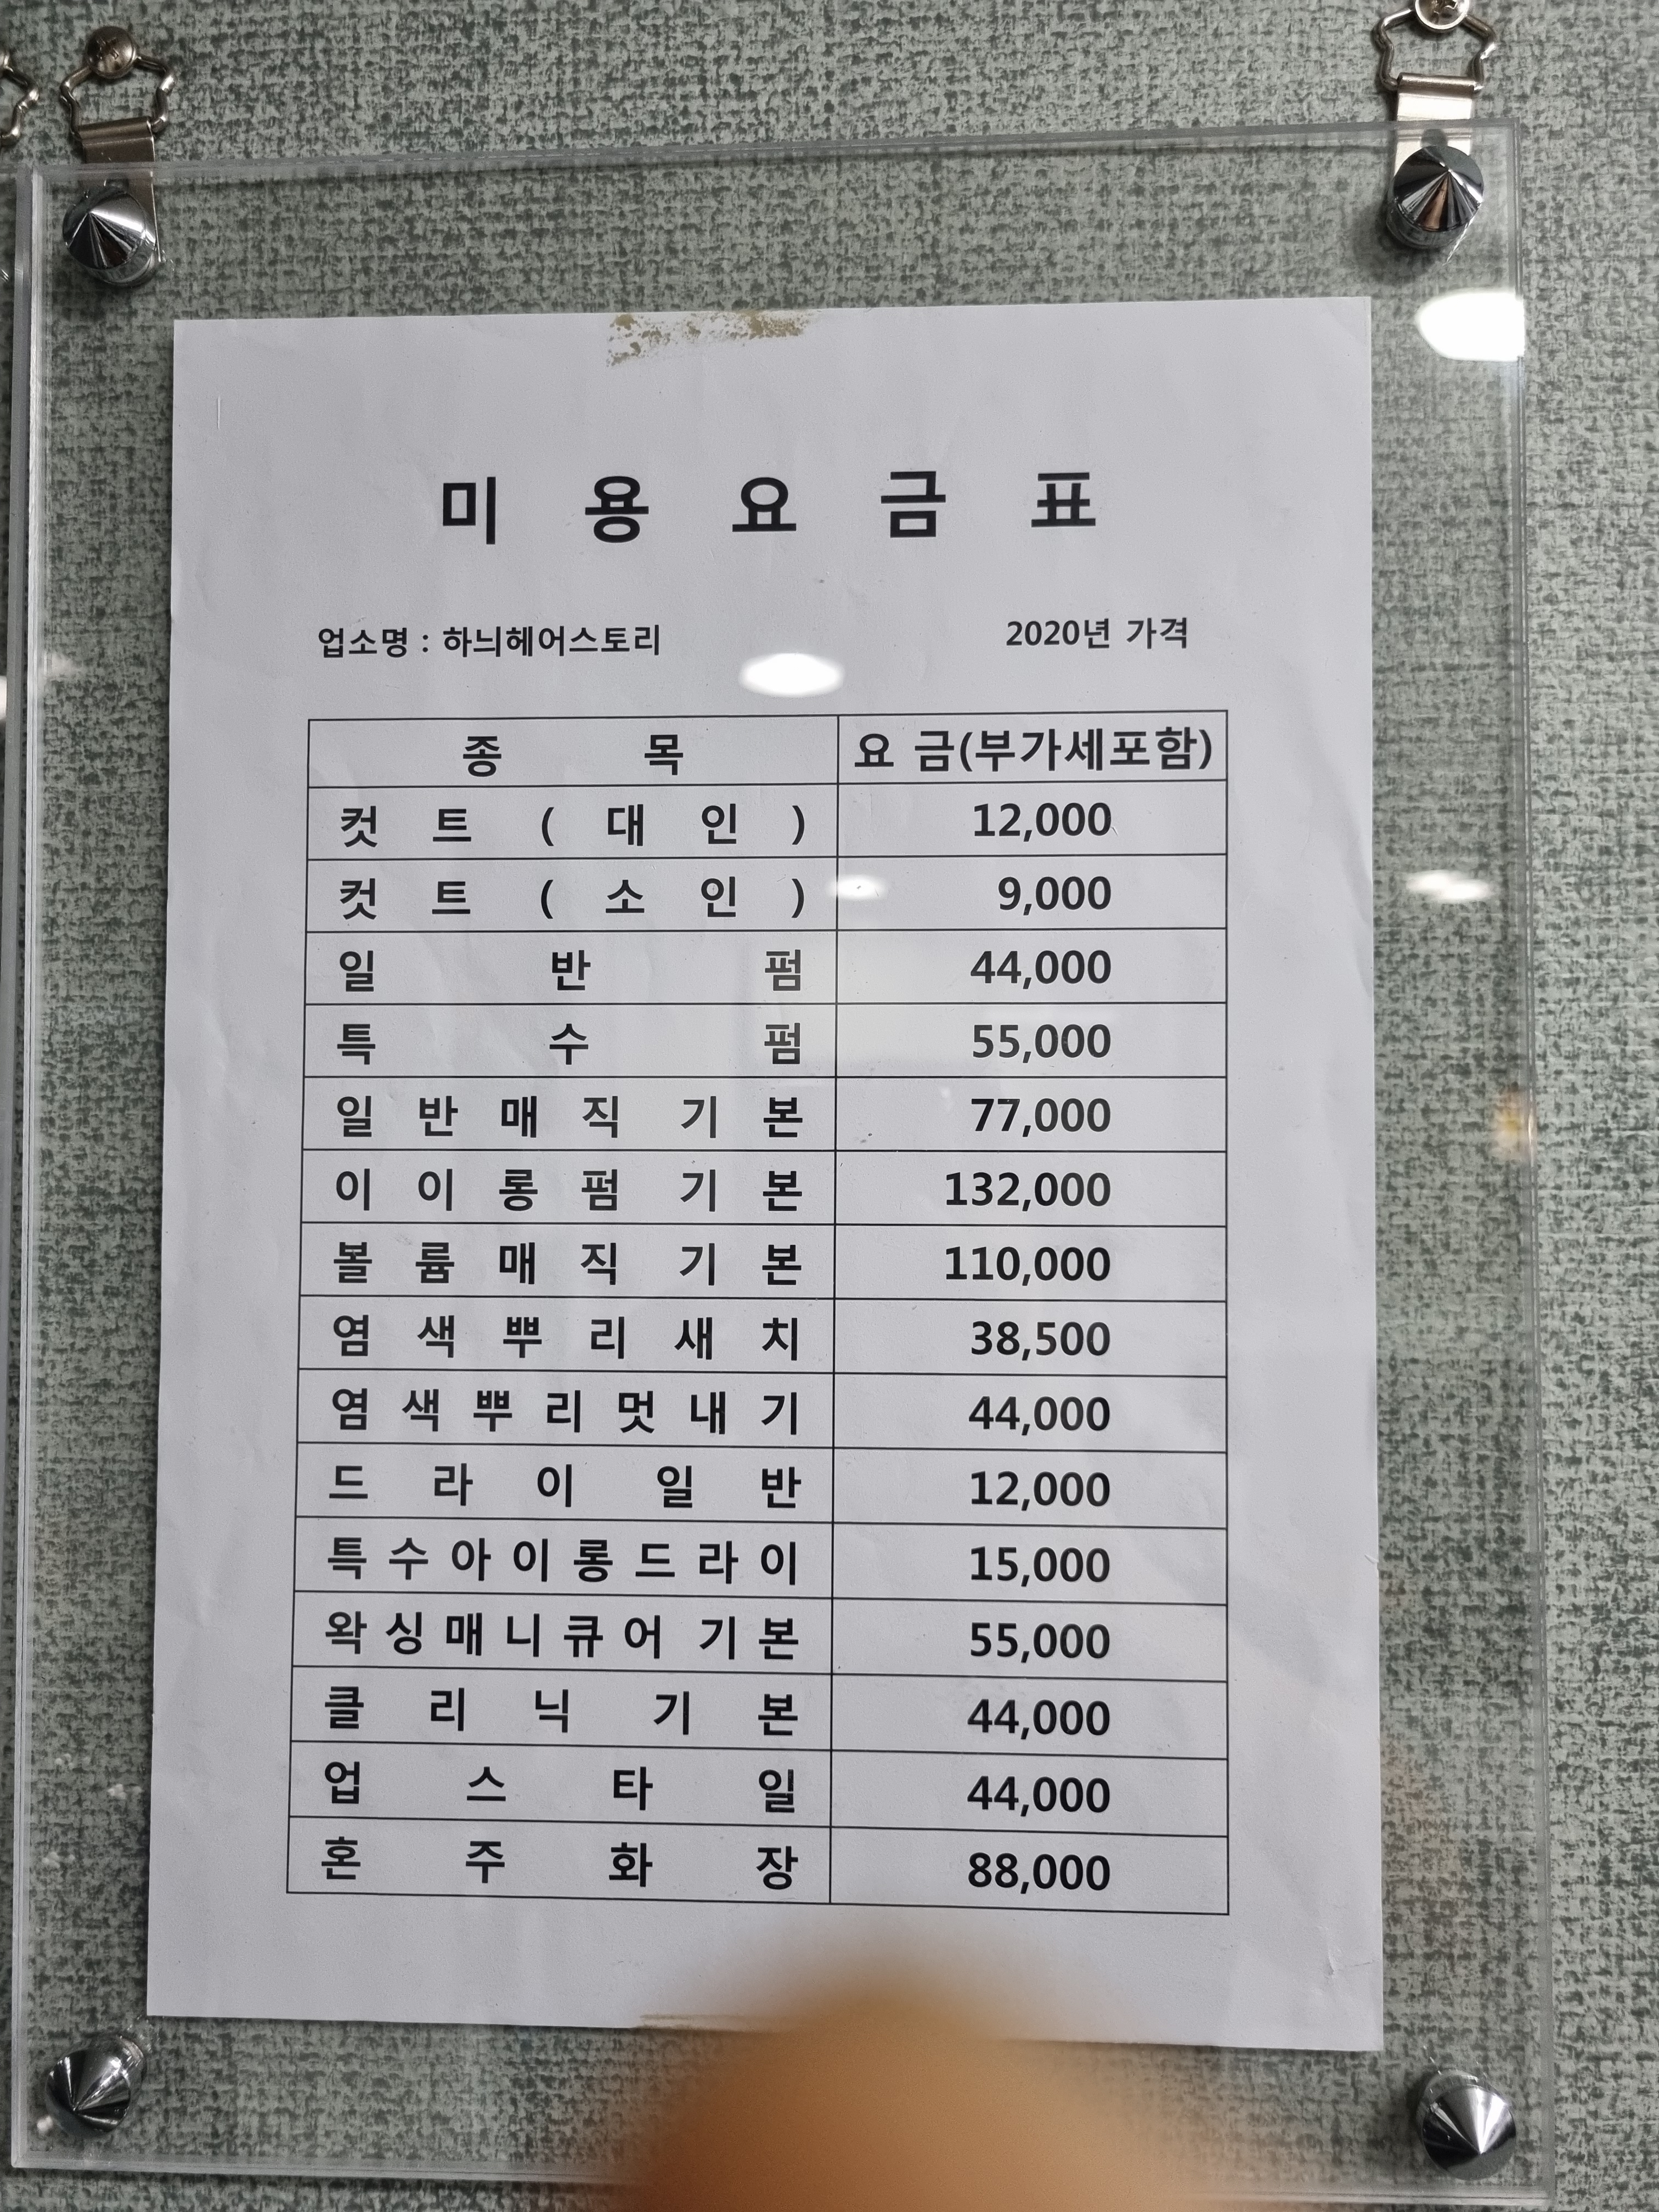 미 용 요 금 표
업소명 : 하늬헤어스토리 2020년 가격
종 목 요 금(부가세포함)
컷 트 ( 대 인 ) 12,000
컷 트 ( 소 인 ) 9,000
일 반 펌 44,000
특 수 펌 55,000
일 반 매 직 기 본 77,000
이 이 롱 펌 기 본 132,000
볼 륨 매 직 기 본 110,000
염 색 뿌 리 새 치 38,500
염 색 뿌 리 멋 내 기 44,000
드 라 이 일 반 12,000
특 수 아 이 롱 드 라 이 15,000
왁 싱 매 니 큐 어 기 본 55,000
클 리 닉 기 본 44,000
업 스 타 일 44,000
혼 주 화 장 88,000